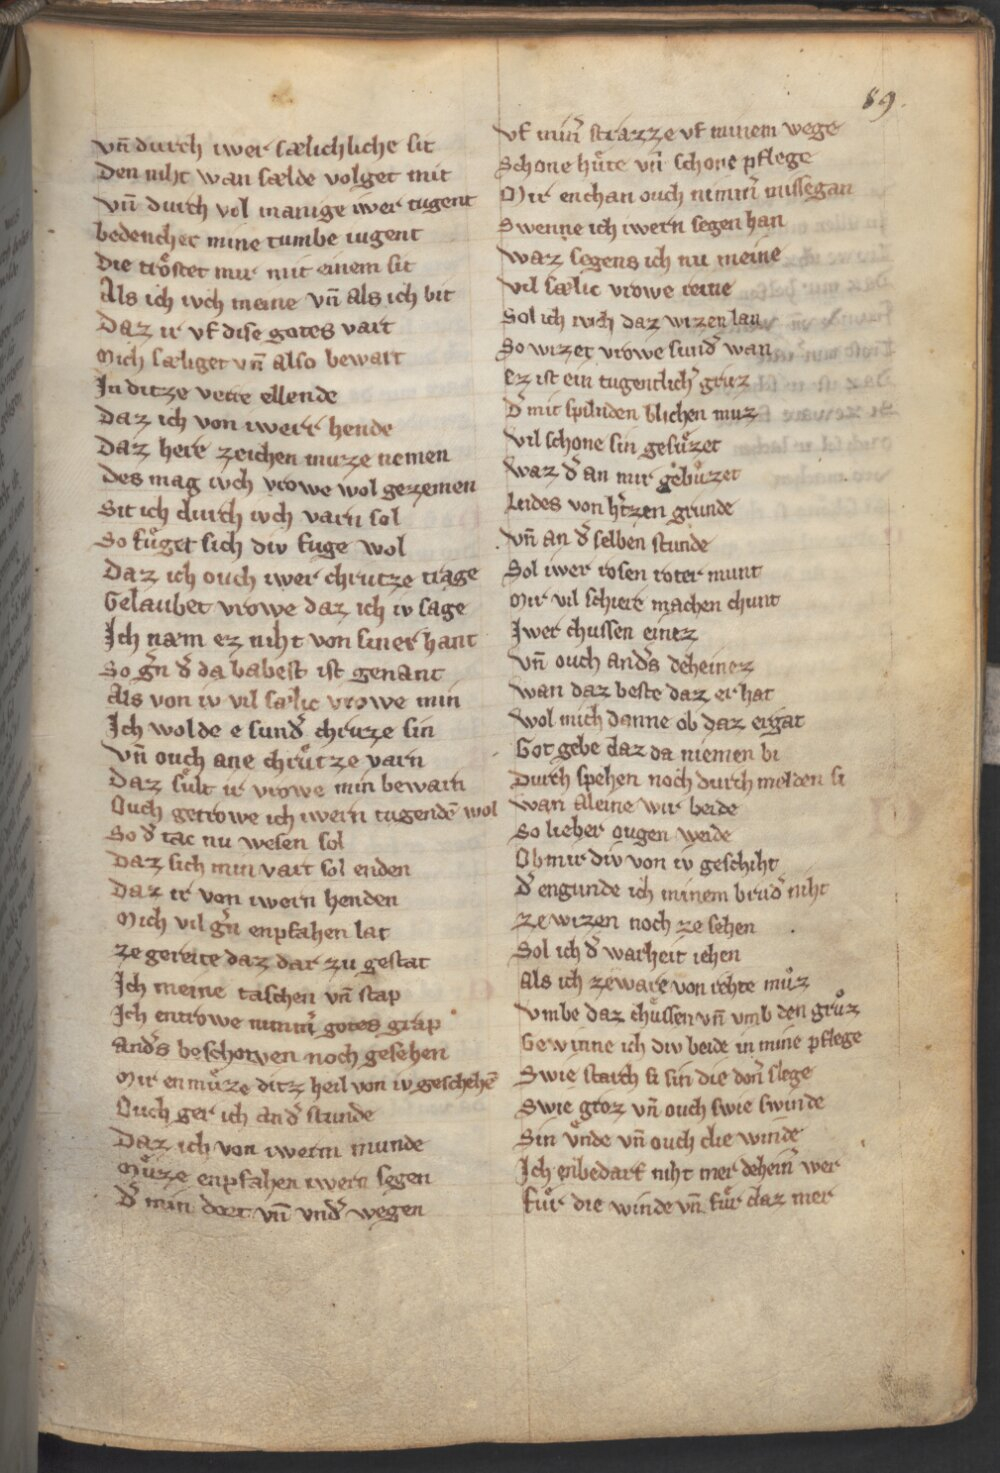 89.
vn̄ durch iwer sælichliche sit
Den niht wan sælde volget mit
vn̄ durch vil manige iwer tugent
bedenchet mine tumbe iugent
Die trͦstet mir mit einem sit
Als ich ivch meine vn̄ als ich bit
Daz ir vf dise gotes vart
Mich sæliget vn̄ also bewart
In ditze verre ellende
Daz ich von iwerr hende
Daz here zeichen muze nemen
Des mag ivch vrowe wol gezemen
Sit ich durch ivch varn sol
So fuͤget sich div fuge wol
Daz ich ouch iwer chrutze trage
Gelaubet vrowe daz ich iv sage
Ich næm ez niht von siner hant
So gn̄ d̓ da babest ist genant
Als von iv vil sælic vrowe min
Ich wolde e sund̓ chruze sin
vn̄ ouch ane chruͤtze varn
Daz suͤlt ir vrowe min bewarn
Ouch getrowe ich iwern tugendē wol
So d̓ tac nu wesen sol
Daz sich min vart sol enden
Daz ir von iwern henden
Mich vil gn̓ enpfahen lat
ze gereite daz dar zu gestat
Ich meine taschen vn̄ stap
Ich entrowe nimm̓ gotes grap
and̓s beschowen noch gesehen
Mir en muͤze ditz heil von iv geschehē
Ouch ger ich and̓ stunde
Daz ich von iwerm munde
Muͤze enpfahen iwern segen
D̓ min dort vn̄ vnd̓ wegen
vf min̓ strazze vf minem wege
Schone huͤte vn̄ schone pflege
Mir enchan ouch nimm̓ missegan
Swenne ich iwern segen han
waz segens ich nu meine
vil sælic vrowe reine
Sol ich ivch daz wizen lan
So wizet vrowe sund̓ wan
Ez ist ein tugentlich̓ gruz
D̓ mit spilnden blichen muz
vil schone sin gesuͤzet
waz d̓ an mir gebuͤzet
Leides von h̓tzen grunde
vn̄ an d̓ selben stunde
Sol iwer rosen roter munt
Mir vil schiere machen chunt
Iwer chussen einez
vn̄ ouch and̓s deheinez
wan daz beste daz er hat
wol mich danne ob daz ergat
Got gebe daz da niemen bi
Durch spehen noch durch melden si
wan aleine wir beide
So lieber ougen weide
Ob mir div von iv geschiht
D̓ engunde ich minem brud̓ niht
ze wizen noch ze sehen
Sol ich d̓ warheit iehen
Als ich zeware von rehte muͦz
vmbe daz chuͤssen vn̄ vmb den gruͦz
Gewinne ich div beide in mine pflege
Swie starch si sin die don̓ slege
Swie groz vn̄ ouch swie swinde
Sin vͤnde vn̄ ouch die winde
Ich enbedarf niht mer dehein̓ wer
fuͤr die winde vn̄ fuͤr daz mer